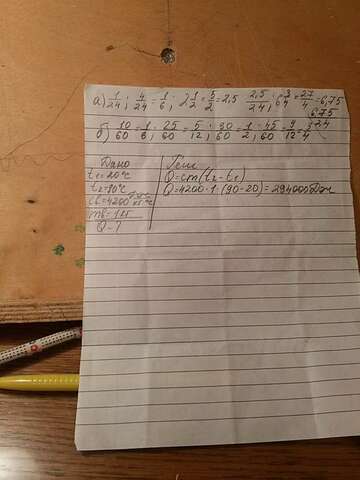 а) 1/24; 4/24 = 1/6; 2 1/2 = 5/2 = 2,5 2,5/24; 6 3/4 = 27/4 = 6,75
6,75/24
б) 10/60 = 1/6; 25/60 = 5/12; 30/60 = 1/2; 45/60 = 9/12 = 3/4
Дано
t₁=20°С
t₂=90°С
cв=4200 Дж/кг°С
mв=1кг
Q-?
Реш
Q=cm(t₂-t₁)
Q=4200·1·(90-20)=294000Дж